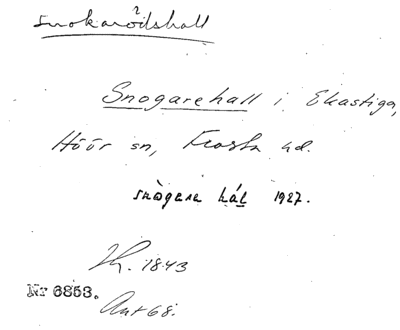 Snokarödshall
?
Snogarehall i Ekastiga,
Höör sn, Frosta hd.
snògara hál 1927.
1843
Nr 6853.
Ant 68.